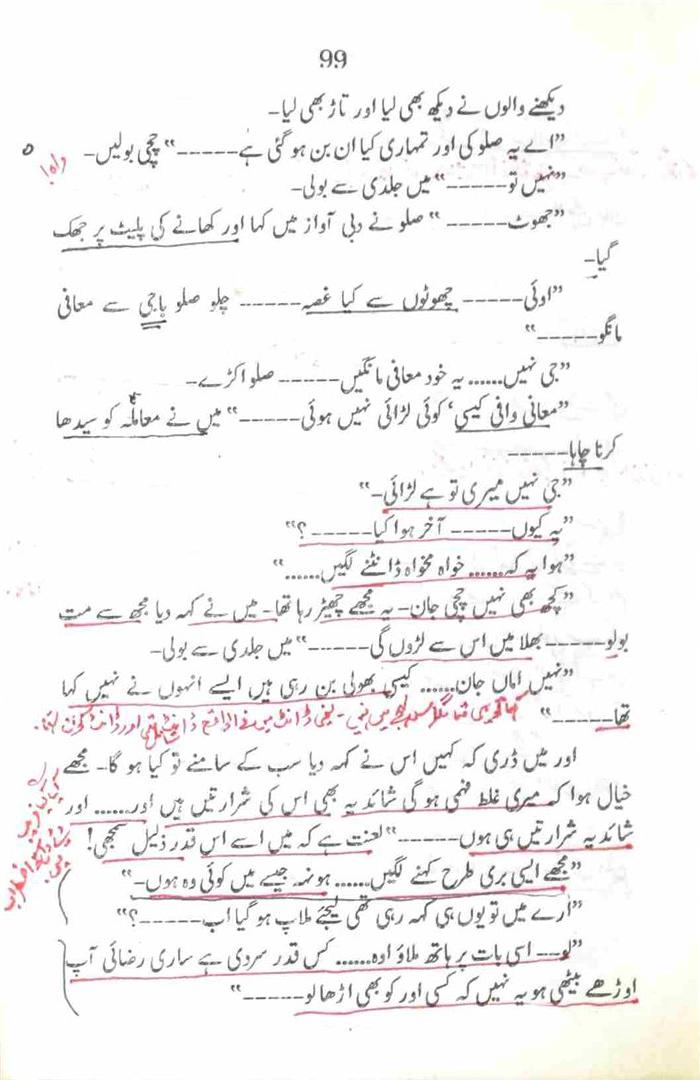 99
دیکھنے والوں نے دیکھ بھی لیا اور تاڑ بھی لیا۔
”اے یہ صلو کی اور تمہاری کیا ان بن ہو گئی ہے-----“ چچی بولیں۔
واہ!
”نہیں تو-----“ میں جلدی سے بولی۔
”جھوٹ-----“ صلو نے دبی آواز میں کہا اور کھانے کی پلیٹ پر جھک
گیا۔
”اوئی----- چھوٹوں سے کیا غصہ----- چلو صلو باجی سے معافی
مانگو-----“
”جی نہیں...... یہ خود معافی مانگیں----- صلو اکڑے۔
”معافی وافی کیسی‘ کوئی لڑائی نہیں ہوئی-----“ میں نے معاملہ کو سیدھا
کرنا چاہا-----
”جی نہیں میری تو ہے لڑائی۔“
”یہ کیوں----- آخر ہوا کیا-----؟“
”ہوا یہ کہ...... خواہ مخواہ ڈانٹنے لگیں......“
”کچھ بھی نہیں چچی جان۔ یہ مجھے چھیڑ رہا تھا۔ میں نے کہہ دیا مجھ سے مت
بولو----- بھلا میں اس سے لڑوں گی-----“ میں جلدی سے بولی۔
”نہیں اماں جان...... کیسی بھولی بن رہی ہیں ایسے انہوں نے نہیں کہا
تھا-----“
اور میں ڈری کہ کہیں اس نے کہہ دیا سب کے سامنے تو کیا ہو گا۔ مجھے
خیال ہوا کہ میری غلط فہمی ہو گی شائد یہ بھی اس کی شرارتیں ہیں اور...... اور
شائد یہ شرارتیں ہی ہوں-----“ لعنت ہے کہ میں اسے اس قدر ذلیل سمجھی!
”مجھے ایسی بری طرح کہنے لگیں...... ہونہہ جیسے میں کوئی وہ ہوں۔“
”ارے میں تو یوں ہی کہہ رہی تھی لیجئے ملاپ ہو گیا اب-----؟“
”لو-- اسی بات پر ہاتھ ملاؤ اوہ...... کس قدر سردی ہے ساری رضائی آپ
اوڑھے بیٹھی ہو یہ نہیں کہ کسی اور کو بھی اڑھا لو-----“